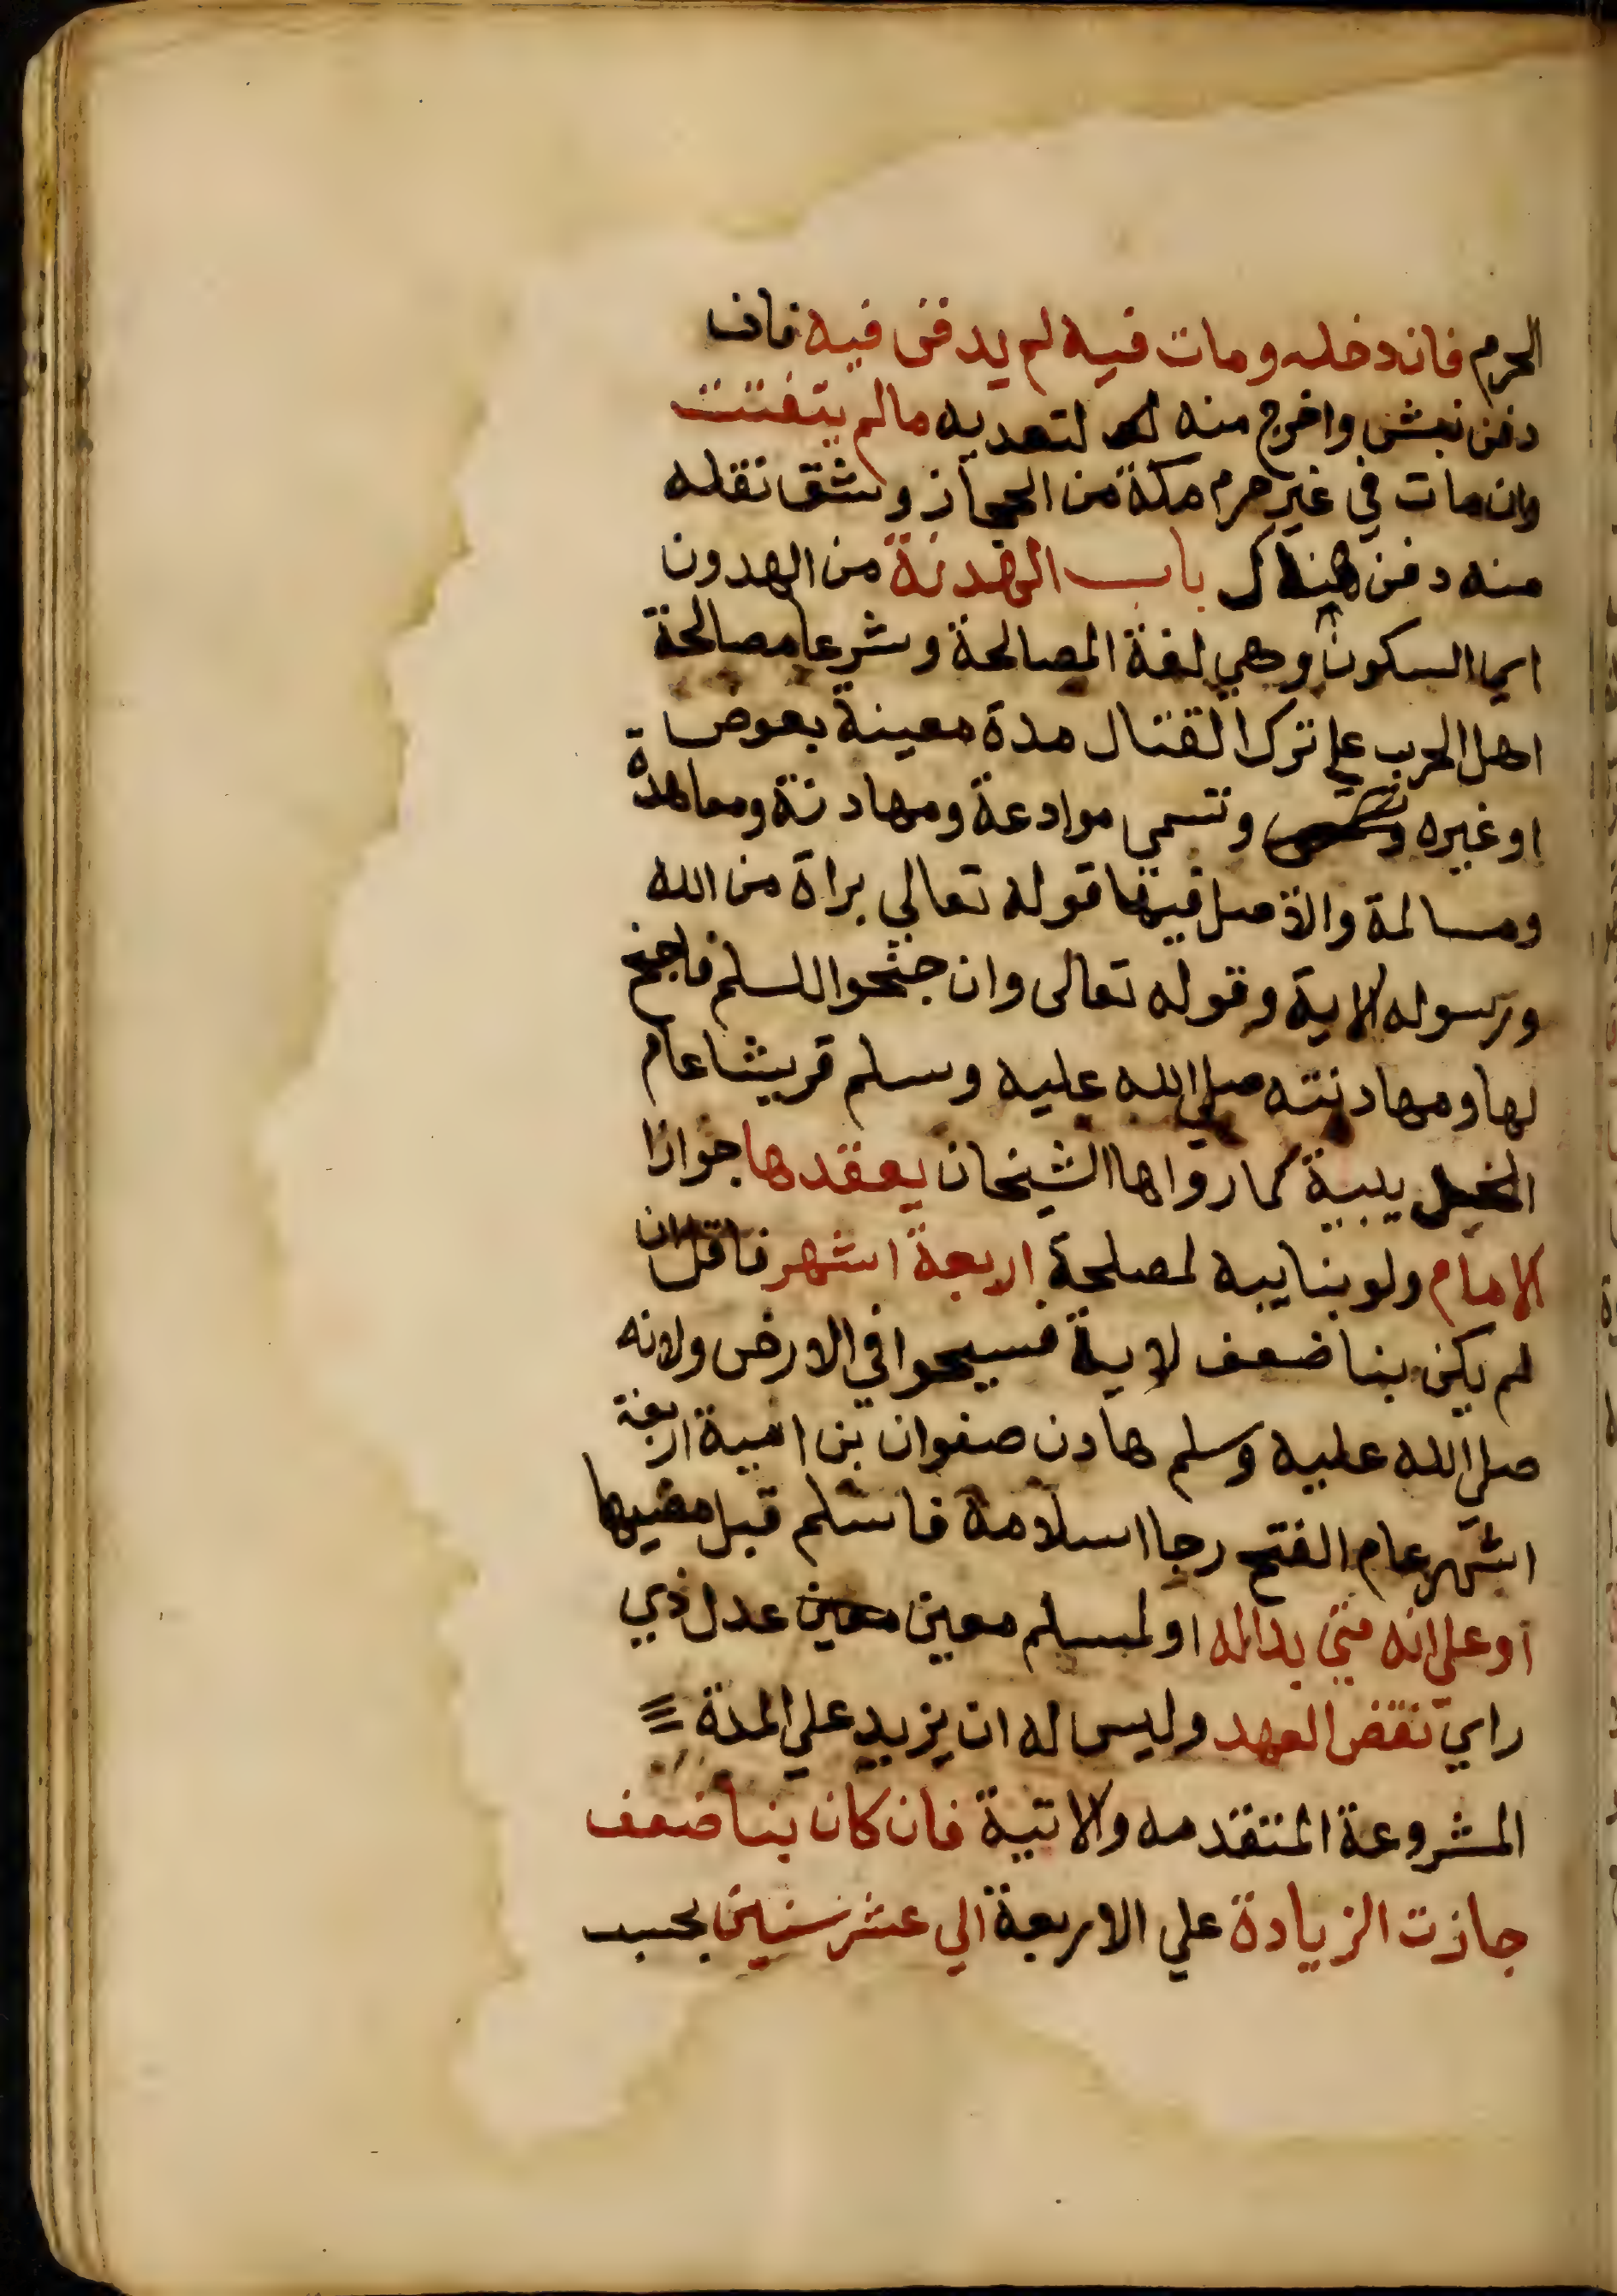 الحرم فان دخله ومات فيه لم يدفن فيه فان
دفن نبش واخرج منه لتعديه مالم يتفتت
وان مات في غير حرم مكة من الحجاز وشق نقله
منه دفن هناك باب الهدنة من الهدون
اي السكون وهي لغة المصالحة وشرعا مصالحة
اهل الحرب علي ترك القتال مدة معينة بعوض
او غيره وتسمي موادعة ومهادنة ومعاهدة
ومسالمة والاصل فيها قوله تعالي براة من الله
ورسوله الاية وقوله تعالى وان جنحوا للسلم فاجنح
لها ومهادنته صلي الله عليه وسلم قريشا عام
يبية كما رواها الشيخان يعقدها جوازا
الامام ولو بنايبه لمصلحة اربعة اشهر فاقل ان
لم يكن بنا ضعف لاية فسيحوا في الارض ولانه
صلي الله عليه وسلم هادن صفوان بن امية اربعة
اشهر عام الفتح رجا اسلامه فاسلم قبل مضيها
او علي انه متي بداله او لمسلم معين عدل ذي
راي نقض العهد وليس له ان يزيد علي المدة
المشروعة المتقدمه والاتية فان كان بنا ضعف
جازت الزيادة علي الاربعة الي عشر سنين بحسب